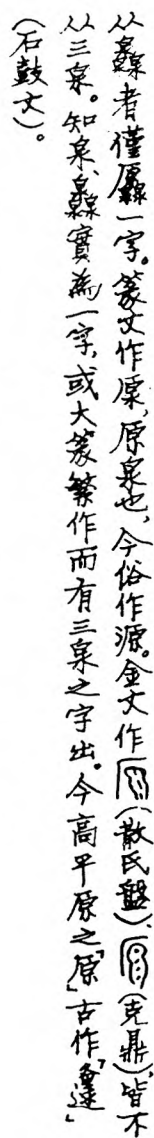 从灥者僅厵一字。篆文作原,原泉也,今俗作源。金文作(散氏盤)、(克鼎),皆不
从三泉。知泉、灥實為一字,或大篆繁作而有三泉之字出。今高平原之「原」古作「邍」
(石鼓文)。